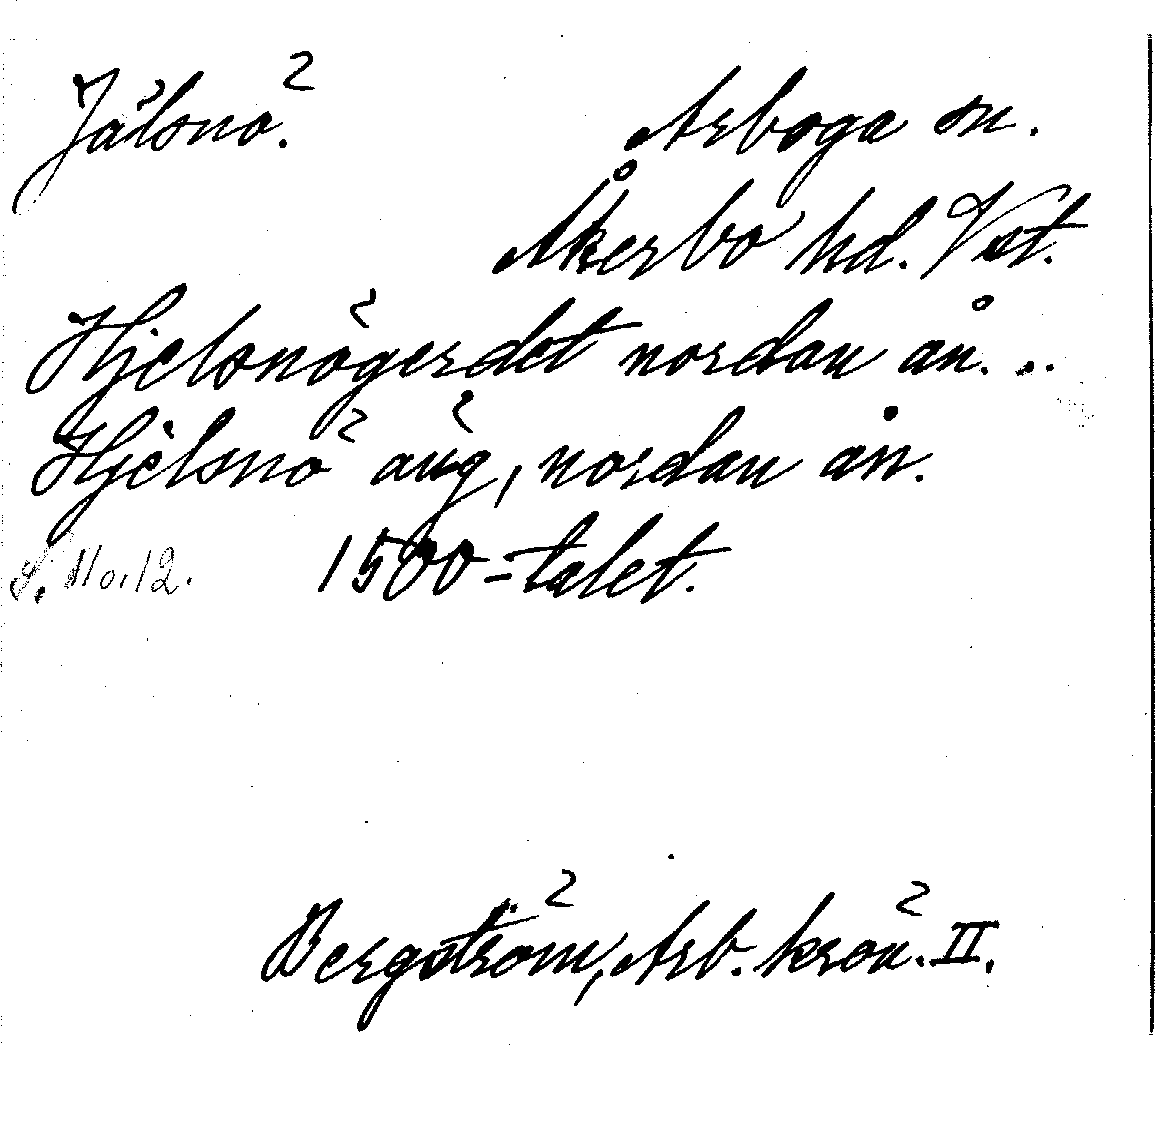 Jälsnö.
Arboga sn.
Åkerbo hd. Vst.
Hjelsnögerdet nordan ån. ..
Hjelsnö äng, nordan ån.
S. No. 12. 1500-talet.
Bergström, Arb. krön. II.